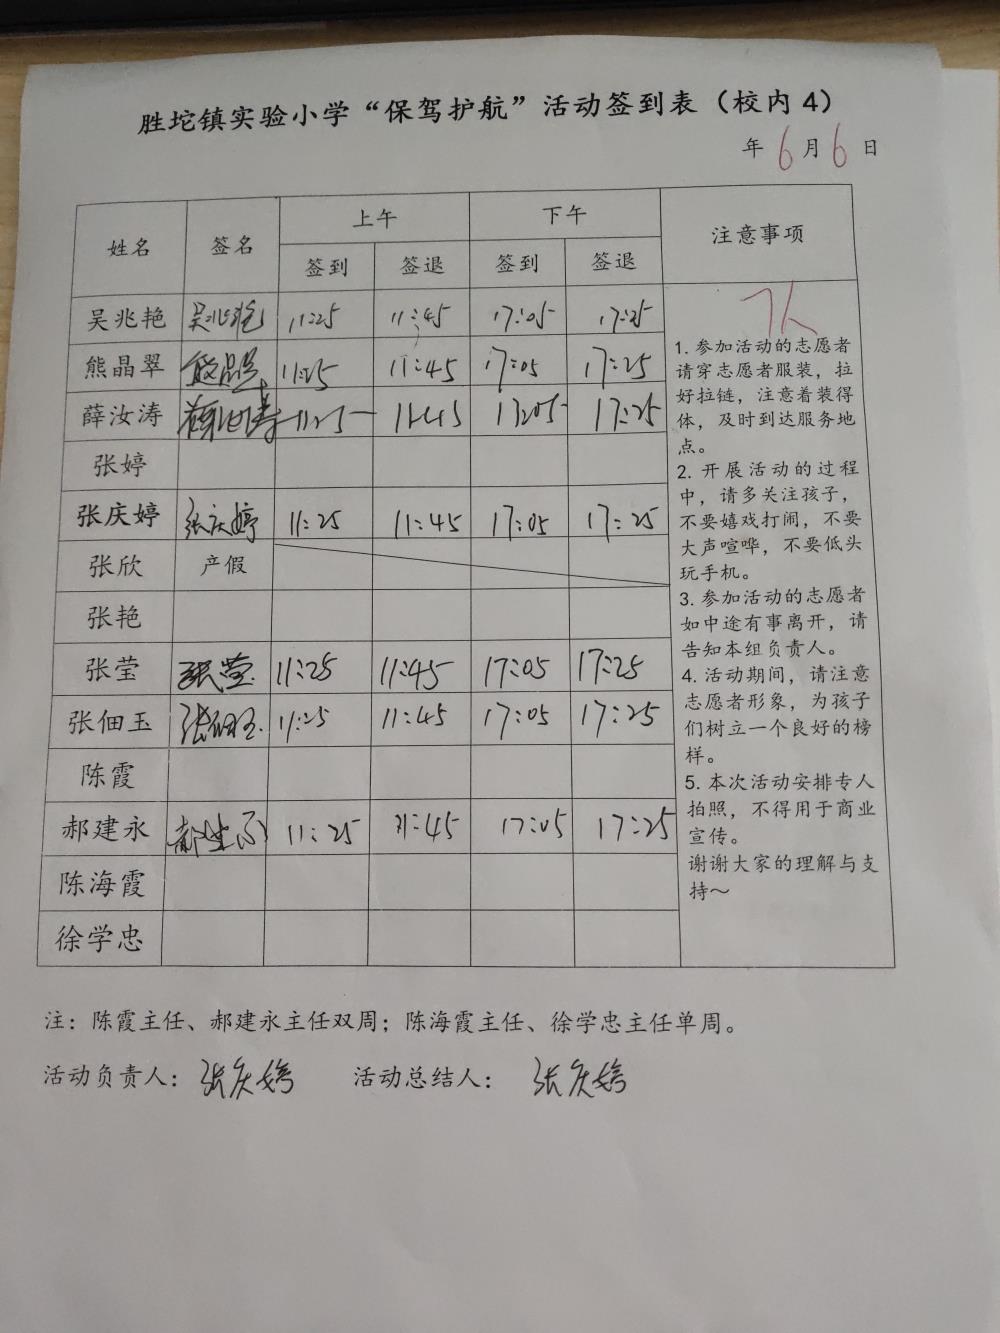 胜坨镇实验小学“保驾护航”活动签到表（校内4）
年 6 月 6 日
姓名 签名 上午 下午 注意事项
签到 签退 签到 签退
吴兆艳 吴兆艳 11:25 11:45 17:05 17:25
熊晶翠 熊晶翠 11:25 11:45 17:05 17:25
薛汝涛 薛汝涛 11:25 11:45 17:05 17:25
张婷
张庆婷 张庆婷 11:25 11:45 17:05 17:25
张欣 产假
张艳
张莹 张莹 11:25 11:45 17:05 17:25
张佃玉 张佃玉 11:25 11:45 17:05 17:25
陈霞
郝建永 郝建永 11:25 11:45 17:05 17:25
陈海霞
徐学忠
1. 参加活动的志愿者
请穿志愿者服装，拉
好拉链，注意着装得
体，及时到达服务地
点。
2. 开展活动的过程
中，请多关注孩子，
不要嬉戏打闹，不要
大声喧哗，不要低头
玩手机。
3. 参加活动的志愿者
如中途有事离开，请
告知本组负责人。
4. 活动期间，请注意
志愿者形象，为孩子
们树立一个良好的榜
样。
5. 本次活动安排专人
拍照，不得用于商业
宣传。
谢谢大家的理解与支
持～
注：陈霞主任、郝建永主任双周；陈海霞主任、徐学忠主任单周。
活动负责人：张庆婷 活动总结人：张庆婷